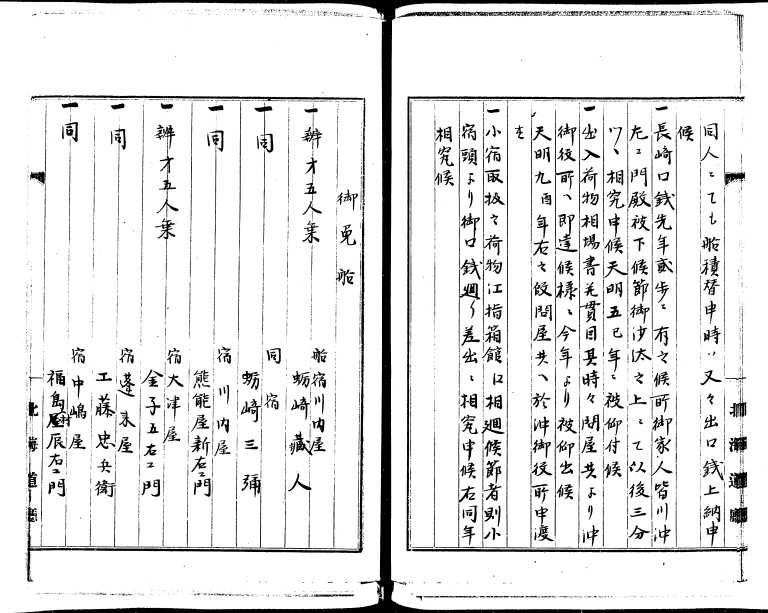 同人ニても船積替申時ハ又々出口銭上納申
候
一長崎口銭先年貳歩ニ有之候所御家人皆川沖
左ニ門殿被下候節御沙汰之上ニて以後三分
ツヽ相究申候天明五巳年ニ被仰付候
一出入荷物相場書并貫目其時々問屋共より沖
御役所ヘ即達候様ニ今年より被仰出候
天明九酉年右之段問屋共ヘ於沖御役所申渡
ス
一小宿取扱之荷物江指箱館ニ相廻候節者則小
宿頭より御口銭廻り差出ニ相究申候右同年
相究候
御免船
一辨才五人乗
船宿川内屋
蛎崎藏人
一同
同宿
蛎崎三彌
一同
宿川内屋
熊能屋新右ニ門
一辨才五人乗
宿大津屋
金子五右ニ門
一同
宿蓬来屋
工藤忠兵衛
一同
宿中嶋屋
福島屋辰右ニ門
北海道廳
北海道廳